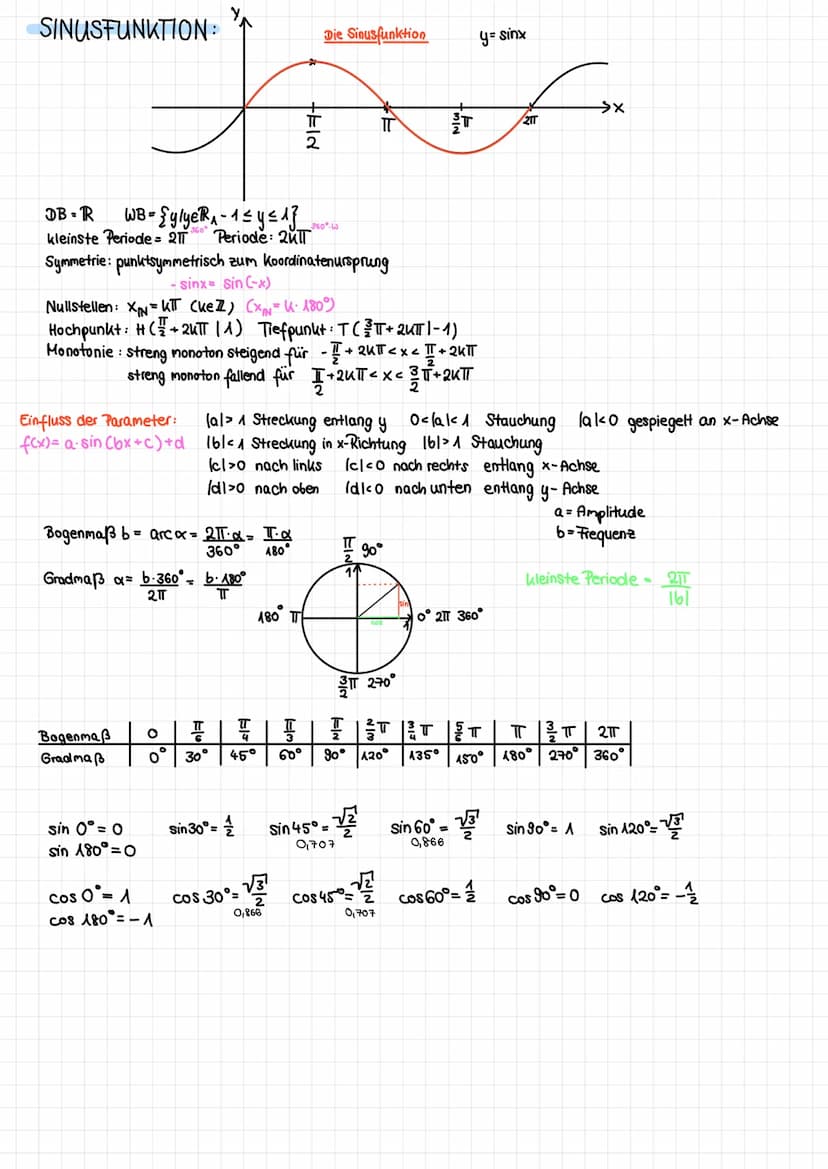 SINUSFUNKTION:
y
Die Sinusfunktion
y = sinx
x
π/2
π
3/2 π
2π
DB = ℝ WB = {y|y∈ℝ ∧ -1 ≤ y ≤ 1}
kleinste Periode = 2π 360° Periode: 2kπ 360°·k
Symmetrie: punktsymmetrisch zum Koordinatenursprung
- sinx = sin(-x)
Nullstellen: xₙ = kπ (k∈ℤ) (xₙ = k · 180°)
Hochpunkt: H(π/2 + 2kπ | 1) Tiefpunkt: T(3/2 π + 2kπ | -1)
Monotonie: streng monoton steigend für - π/2 + 2kπ < x < π/2 + 2kπ
streng monoton fallend für π/2 + 2kπ < x < 3/2 π + 2kπ
Einfluss der Parameter: |a| > 1 Streckung entlang y 0 < |a| < 1 Stauchung |a| < 0 gespiegelt an x-Achse
f(x) = a · sin(bx + c) + d |b| < 1 Streckung in x-Richtung |b| > 1 Stauchung
|c| > 0 nach links |c| < 0 nach rechts entlang x-Achse
|d| > 0 nach oben |d| < 0 nach unten entlang y-Achse
a = Amplitude
b = Frequenz
Bogenmaß b = arc α = 2π·α/360° = π·α/180°
Gradmaß α = b·360°/2π = b·180°/π
π/2 90°
1
sin
cos
1
180° π
0° 2π 360°
3/2 π 270°
kleinste Periode = 2π/|b|
Bogenmaß 0 π/6 π/4 π/3 π/2 2/3 π 3/4 π 5/6 π π 3/2 π 2π
Gradmaß 0° 30° 45° 60° 90° 120° 135° 150° 180° 270° 360°
sin 0° = 0 sin 30° = 1/2 sin 45° = √2/2 sin 60° = √3/2 sin 90° = 1 sin 120° = √3/2
0,707 0,866
sin 180° = 0
cos 0° = 1 cos 30° = √3/2 cos 45° = √2/2 cos 60° = 1/2 cos 90° = 0 cos 120° = -1/2
0,866 0,707
cos 180° = -1